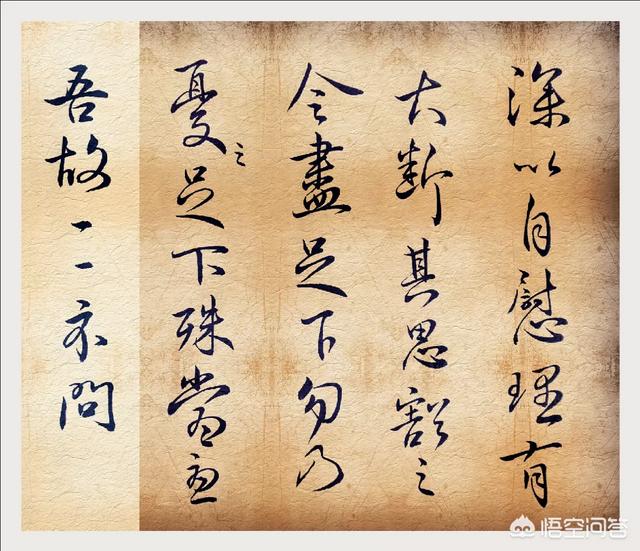 深以自慰理有
大断其思豁之
令盡足下勿乃
憂之足下殊當憂
吾故一一示問
悟空问答